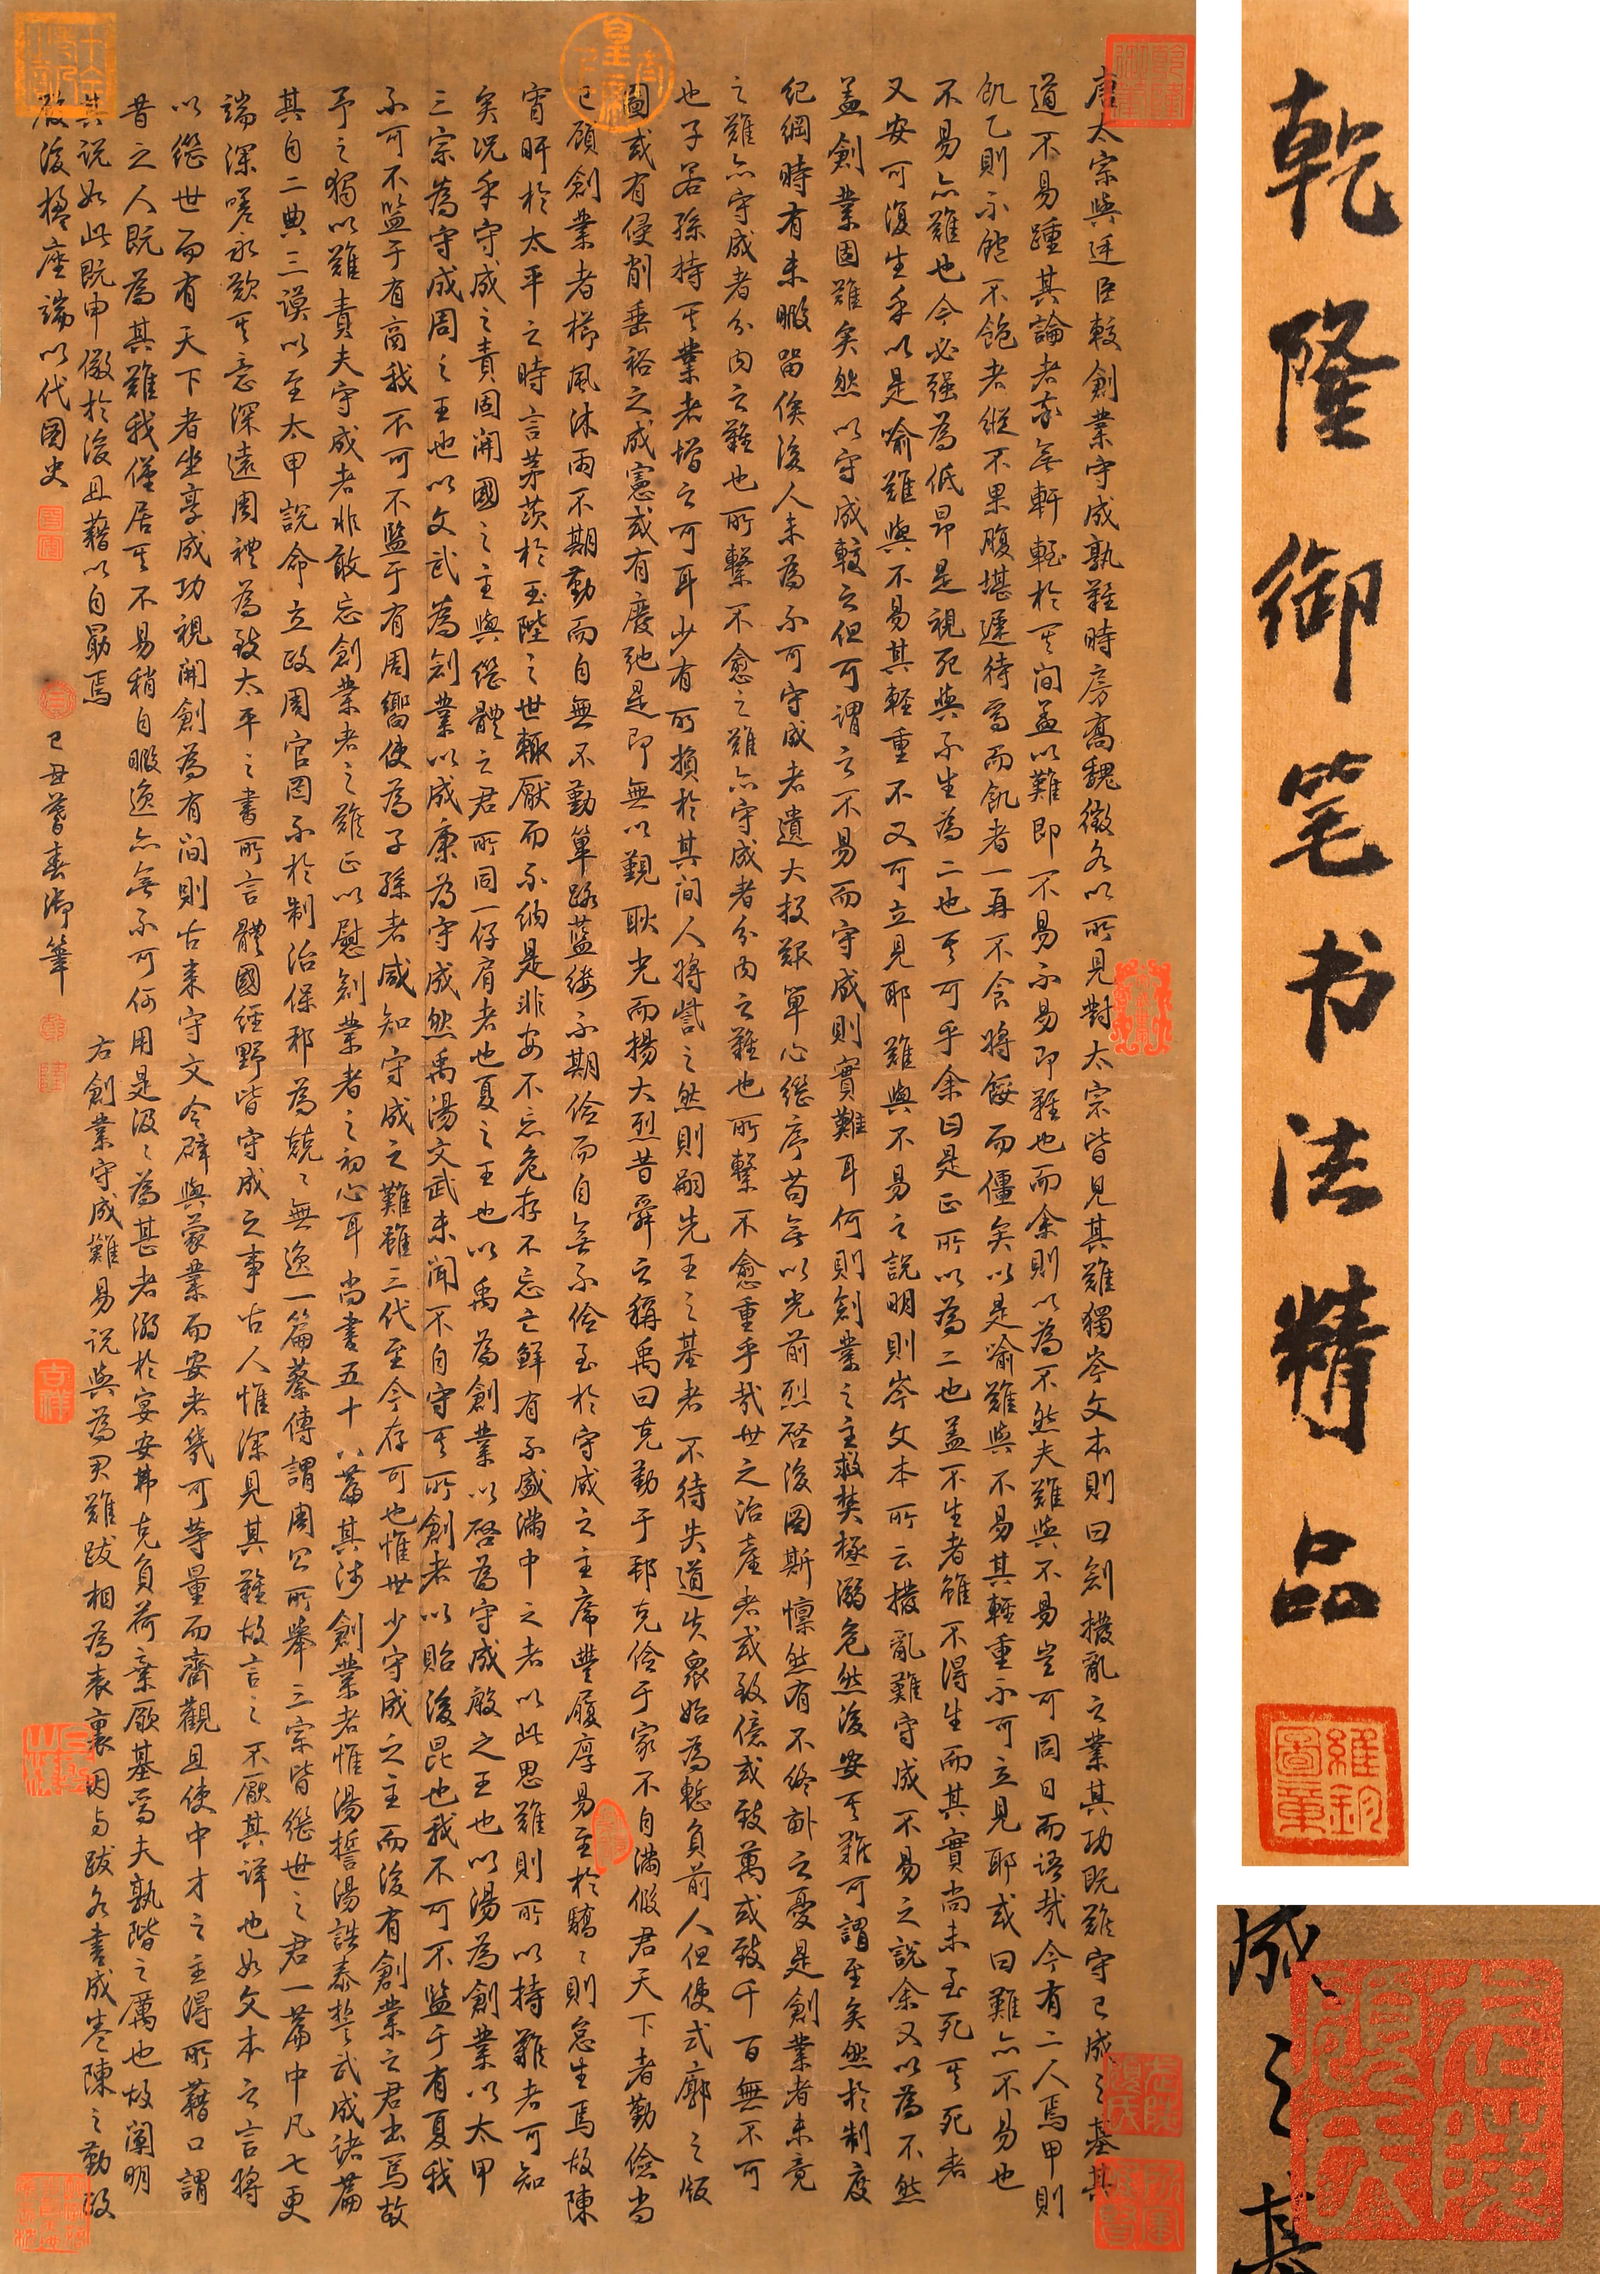 唐太宗與廷臣較創業守成孰難時房喬魏徵各以所見對太宗皆見其難獨岑文本則曰創撥亂之業其功既難守已成之基其
道不易踵其論者亦無軒輊於其間蓋以難即不易不易即難也而余則以為不然夫難與不易豈可同日而語哉今有二人焉甲則
飢乙則不飽不飽者縱不果腹堪遲待焉而飢者一再不食將餒而僵矣以是喻難與不易其輕重不可立見耶或曰難亦不易也
不易亦難也今必強為低昂是視死與不生為二也其可乎余曰是正所以為二也蓋不生者雖不得生而其實尚未至死其死者
又安可復生乎以是喻難與不易其輕重不又可立見耶難與不易之說明則岑文本所云撥亂難守成不易之說余又以為不然
蓋創業固難矣然以守成較之但可謂之不易而守成則實難耳何則創業之主救焚拯溺危然後安其難可謂至矣然於制度
紀綱時有未暇留俟後人未為不可守成者遺大投艱單心繼序苟無以光前烈啓後圖斯懍然有不終畝之憂是創業者未竟
之難亦守成者分內之難也所繫不愈之難亦守成者分內之難也所繫不愈重乎哉世之治產者或致億或致萬或致千百無不可
也子若孫持其業者增之可耳少有所損於其間人將訾之然則嗣先王之基者不待失道失眾始為慙負前人但使式廓之版
圖或有侵削垂裕之成憲或有廢弛是即無以覲耿光而揚大烈昔舜之稱禹曰克勤于邦克儉于家不自滿假君天下者勤儉尚
已顧創業者櫛風沐雨不期勤而自無不勤篳路藍縷不期儉而自無不儉至於守成之主席豐履厚易至於驕驕則怠生焉故陳
宵旰於太平之時言茅茨於玉陛之世輒厭而不納是非安不忘危存不忘亡鮮有不盛滿中之者以此思難則所以持難者可知
矣況乎守成之責固開國之主與繼體之君所同一仔肩者也夏之王也以禹為創業以啓為守成殷之王也以湯為創業以太甲
三宗為守成周之王也以文武為創業以成康為守成然禹湯文武未聞不自守其所創者以貽後昆也我不可不監于有夏我
不可不監于有商我不可不監于有周嚮使為子孫者咸知守成之難雖三代至今存可也惟世少守成之主而後有創業之君出焉故
予之獨以難責夫守成者非敢忘創業者之難正以慰創業者之初心耳尚書五十八篇其涉創業者惟湯誓湯誥泰誓武成諸篇
其自二典三謨以至太甲說命立政周官罔不於制治保邦為兢兢無逸一篇蔡傳謂周公所舉三宗皆繼世之君一篇中凡七更
端深嗟永歎其意深遠周禮為致太平之書所言體國經野皆守成之事古人惟深見其難故言之不厭其詳也如文本之言將
以繼世而有天下者坐享成功視開創為有間則古來守文令辟與蒙業而安者幾可等量而齊觀且使中才之主得所藉口謂
昔之人既為其難我僅居其不易稍自暇逸亦無不可何用是汲汲為甚者溺於宴安弗克負荷棄厥基焉夫孰階之厲也故闡明
其說如此既申儆於後且藉以自勗焉
右創業守成難易說與為君難跋相為表裏因與跋各書成卷陳之勤政
殿後楹座端以代圖史
己丑暮春御筆
乾隆御笔书法精品
成之基